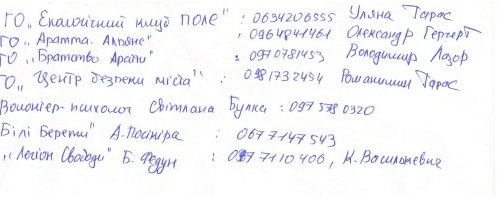 ГО „Екологічний клуб ПОЛЕ" : 0634206555 Уляна Тарас
ГО „Аратта. Альянс" : 0964841461 Олександр Гергерт
ГО „Братство Арати" : 0970781453 Володимир Лазор
ГО „Центр безпеки міста" : 0981732454 Романишин Тарас
Волонтер-психолог Світлана Булка : 097 578 0320
Білі Берети" А. : 067 7147 543
„Легіон Свободи" Б. Федун : 097 7110 400, К. Василькевич